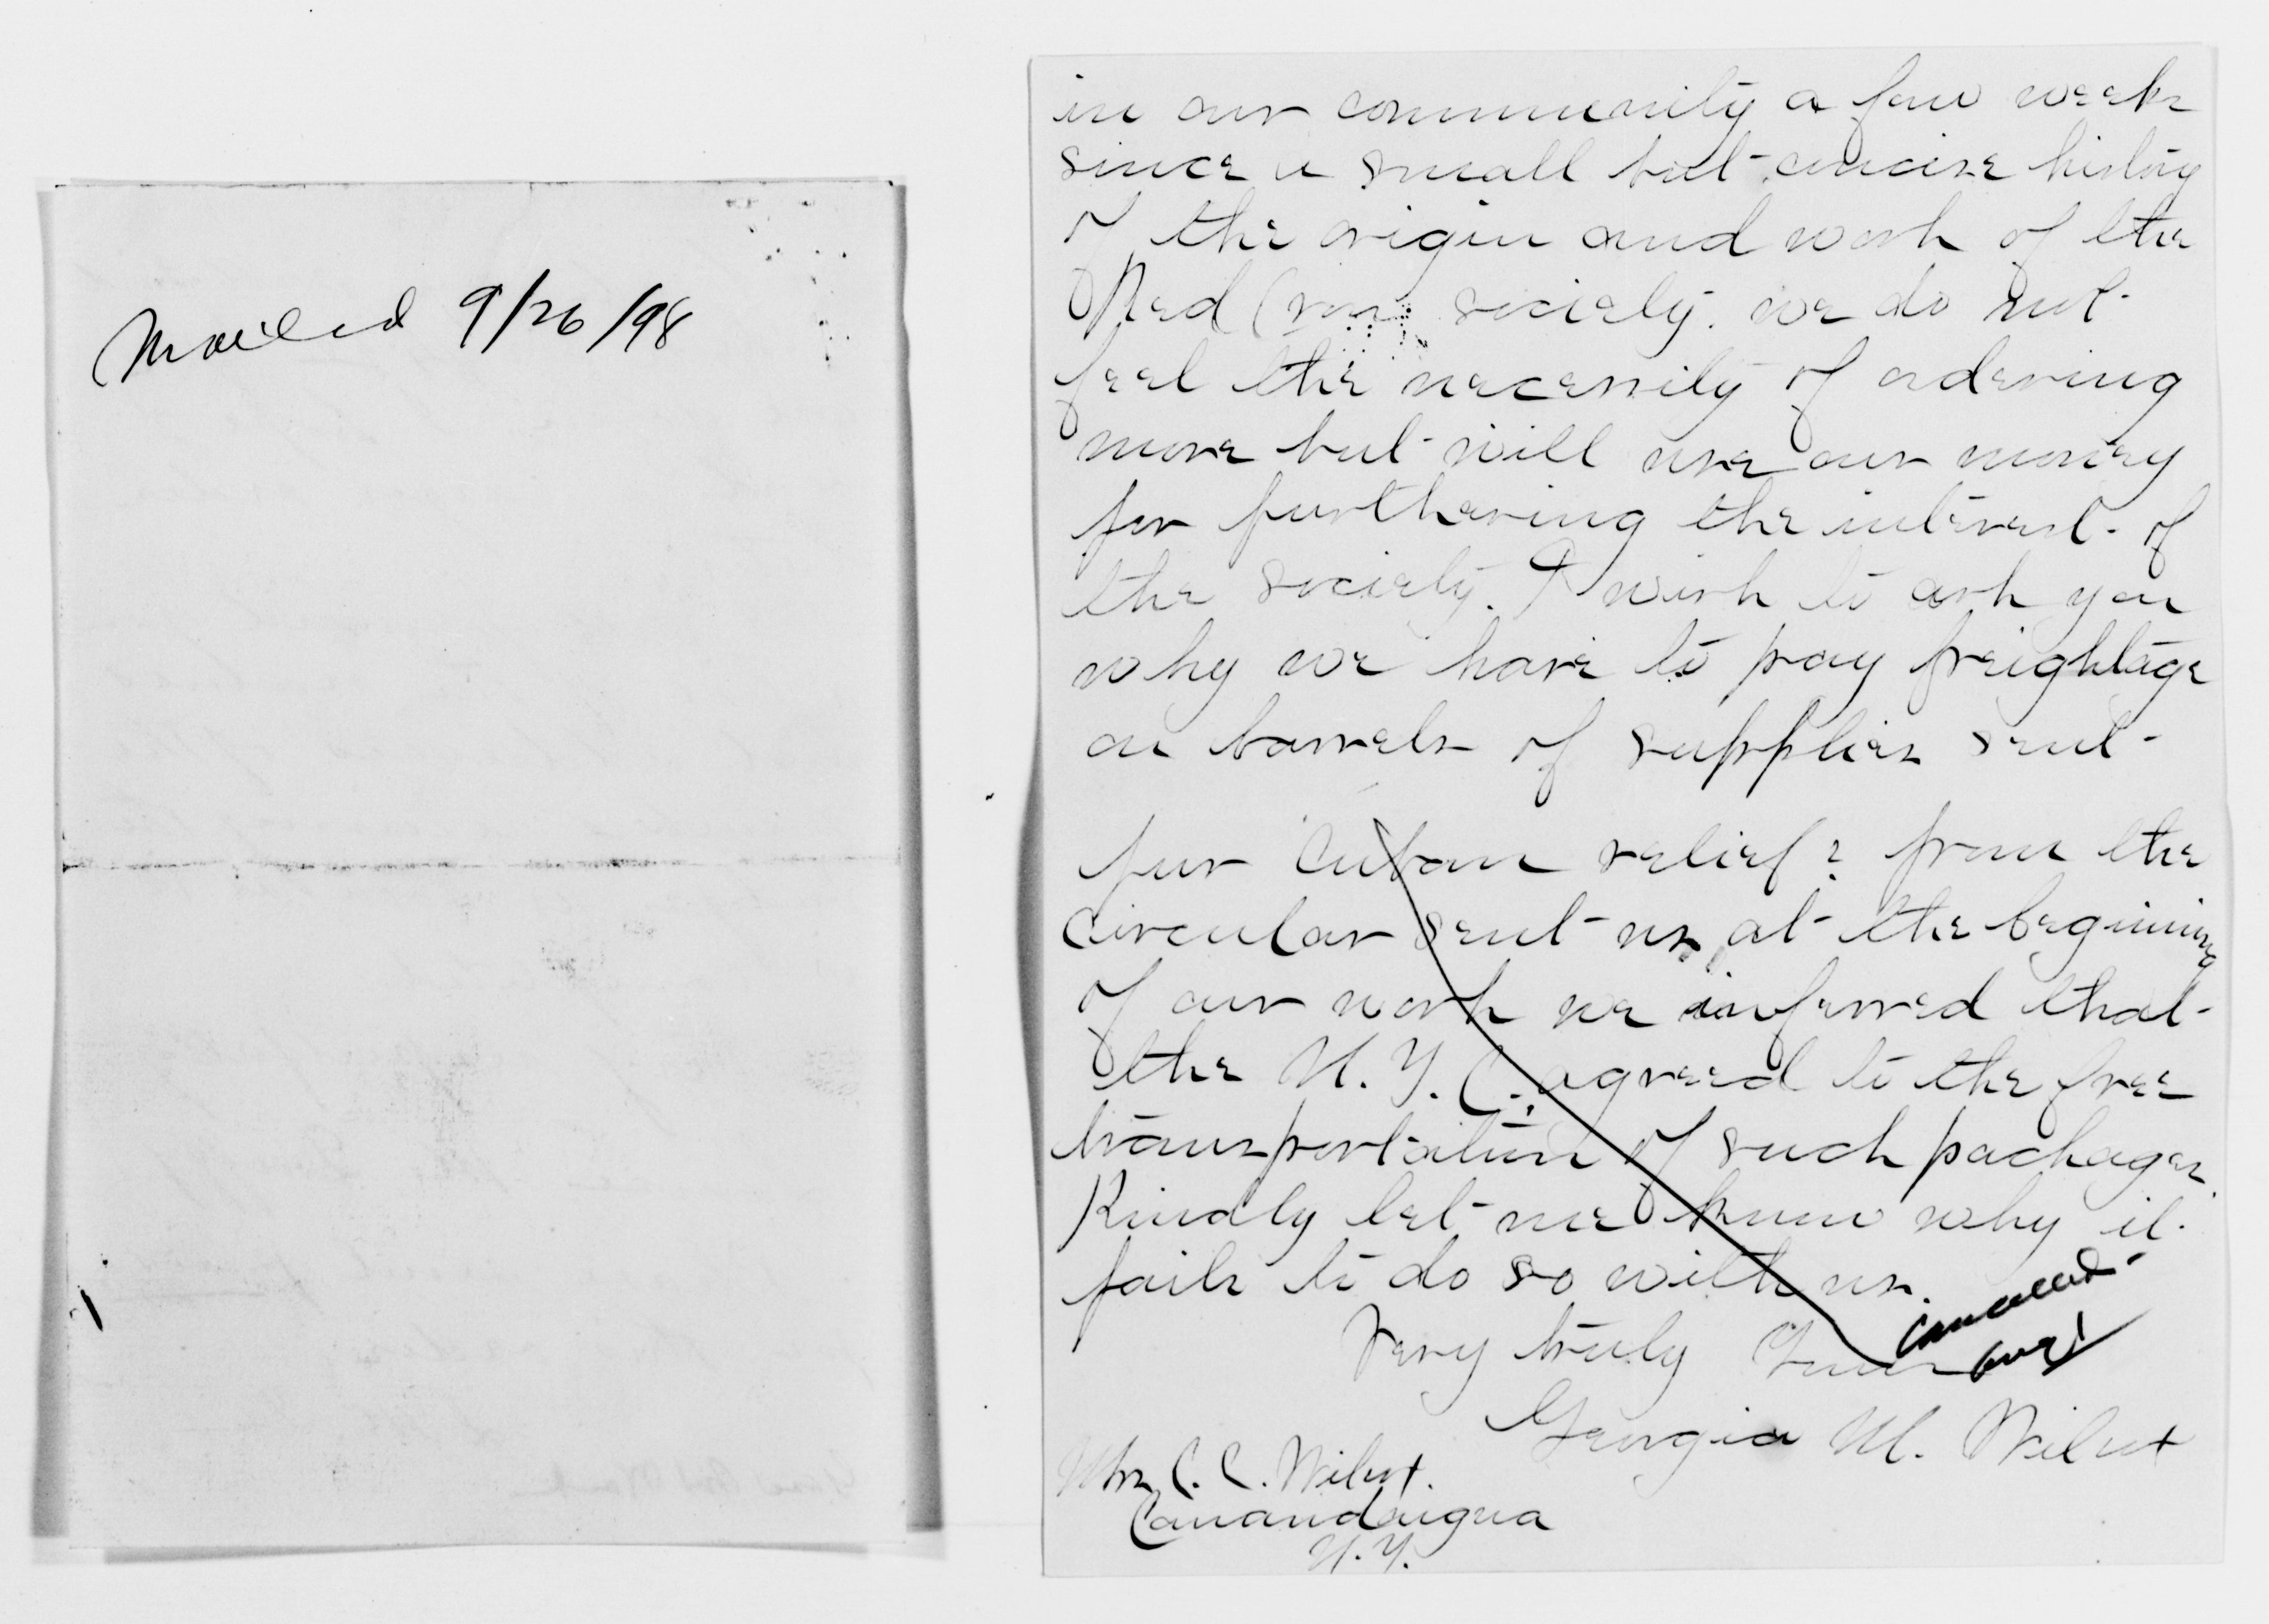 Mailed 9/26/98
in our community a few weeks
since a small but concise history
of the origin and work of the
Red Cross society. we do not
feel the necessity of ordering
more but will use our money
for furthering the interest of
the society. I wish to ask you
why we have to pay freightage
on barrels of supplies sent
for Cuban relief? from the
circular sent us at the begining
of our work we inferred that
the N.Y.C. agreed to the free
transportation of such packages.
Kindly let me know why it
fails to do so with us.
Very truly Yours
Cancelled
Georgia M. Wilcox
Mrs C. C. Wilcox.
Canandaigua
N.Y.